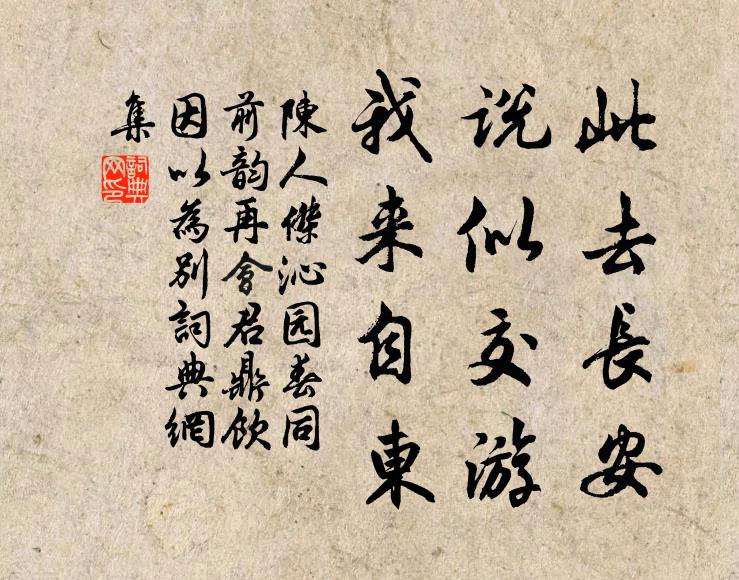 此去長安
说似交游
我来自東
陳人傑沁园春同
前韵再會君鼎飲
因以為別詞典網
集
詞典
网印